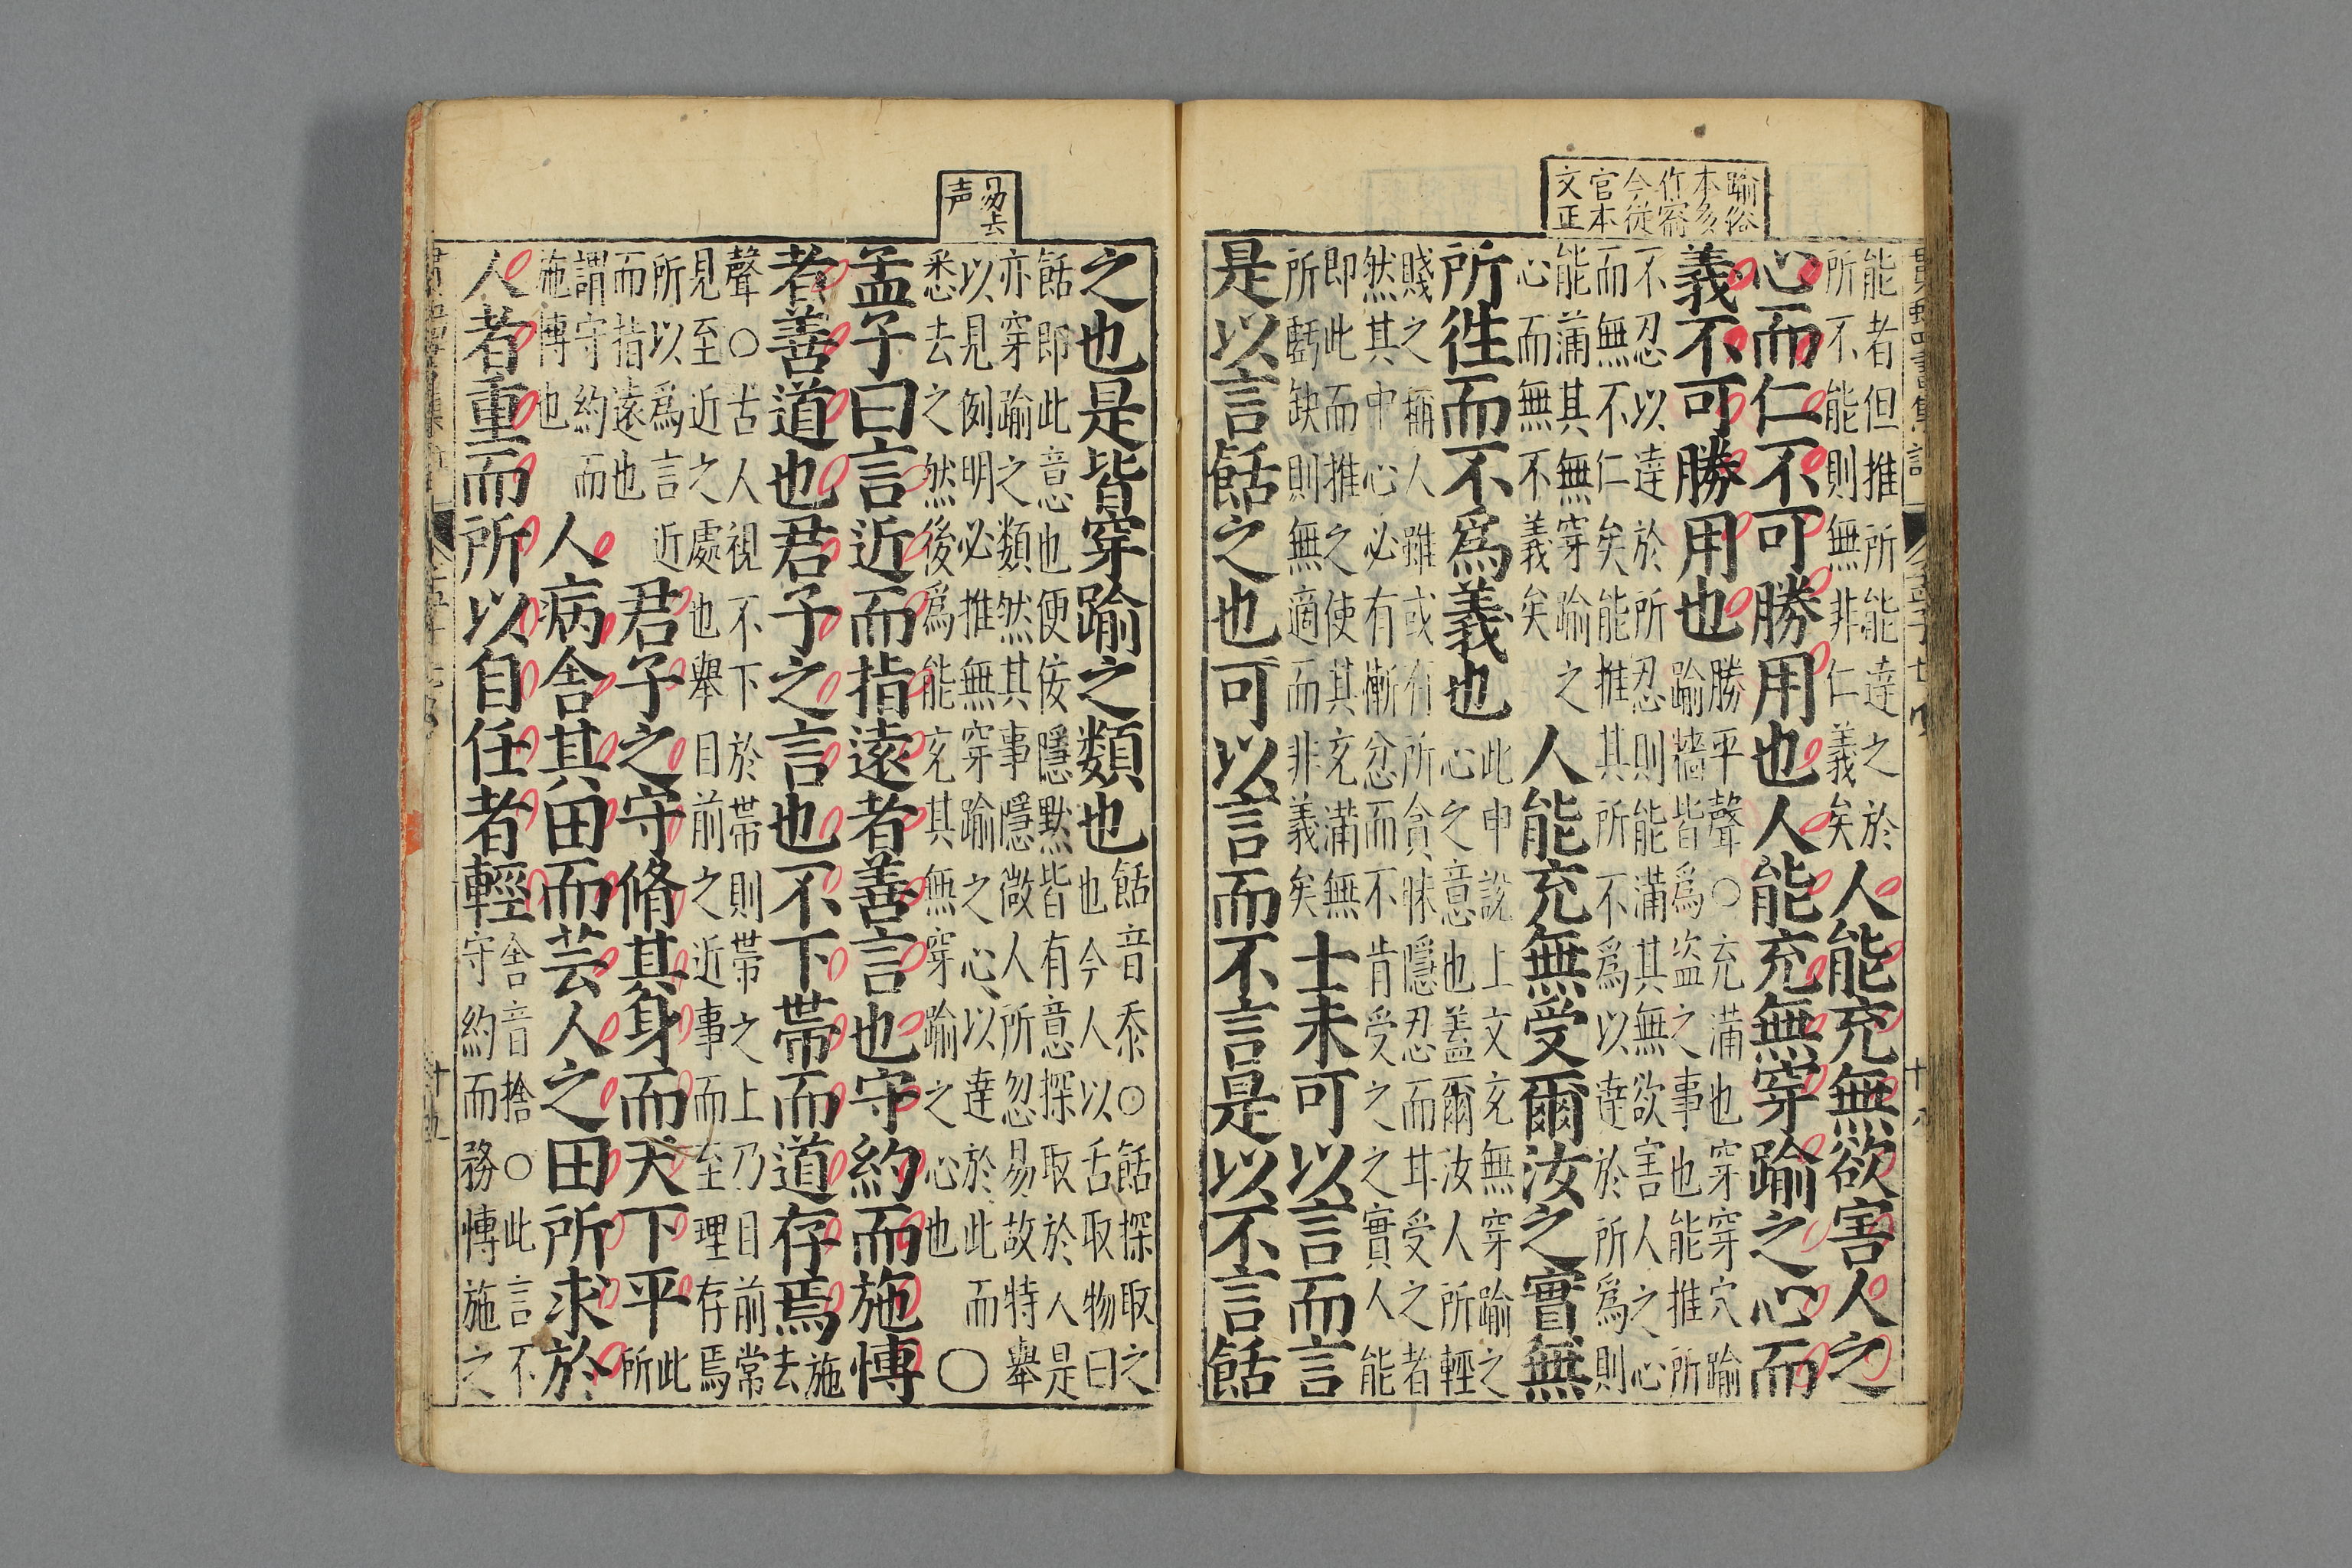 踰俗
本多
作窬
今從
官本
文正
能者但推所能達之於
所不能則無非仁義矣
人能充無欲害人之
心而仁不可勝用也人能充無穿踰之心而
義不可勝用也
勝平聲○充滿也穿穿穴踰
踰牆皆爲盜之事也能推所
不忍以達於所忍則能滿其無欲害人之心
而無不仁矣能推其所不爲以達於所爲則
能滿其無穿踰之
心而無不義矣
人能充無受爾汝之實無
所徃而不爲義也
此申說上文充無穿踰之
心之意也蓋爾汝人所輕
賤之稱人雖或有所貪昧隱忍而甘受之者
然其中心必有慚忿而不肯受之之實人能
即此而推之使其充滿無
所虧缺則無適而非義矣
士未可以言而言
是以言餂之也可以言而不言是以不言餂
易去
声
之也是皆穿踰之類也
餂音忝○餂探取之
也今人以舌取物曰
餂即此意也便佞隱默皆有意探取於人是
亦穿踰之類然其事隱微人所忽易故特舉
以見例明必推無穿踰之心以達於此而
悉去之然後爲能充其無穿踰之心也
○
孟子曰言近而指遠者善言也守約而施博
者善道也君子之言也不下帶而道存焉
施
去
聲○古人視不下於帶則帶之上乃目前常
見至近之處也舉目前之近事而至理存焉
所以爲言近
而指遠也
君子之守脩其身而天下平
此
所
謂守約而
施博也
人病舍其田而芸人之田所求於
人者重而所以自任者輕
舍音捨○此言不
守約而務博施之